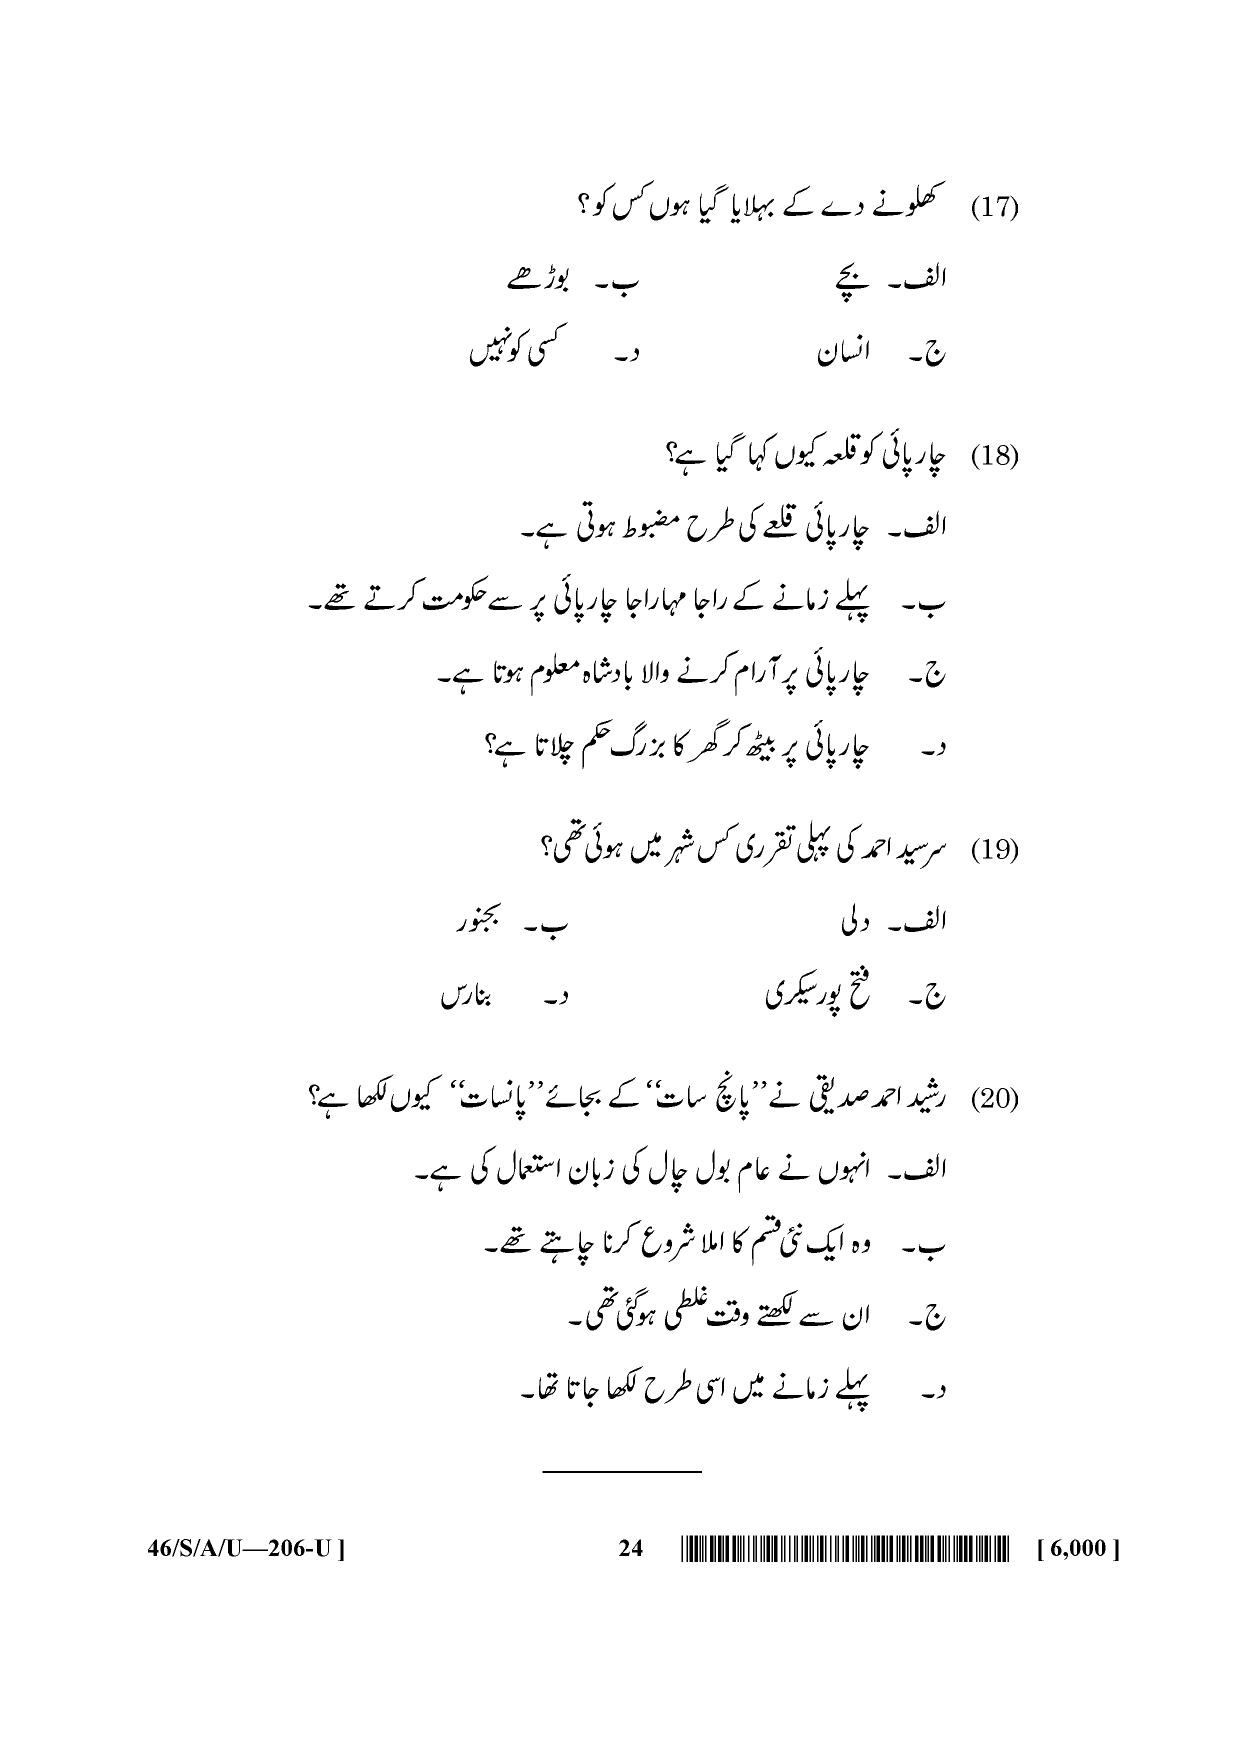 (17) کھلونے دے کے بہلایا گیا ہوں کس کو؟
الف۔ بچے ب۔ بوڑھے
ج۔ انسان د۔ کسی کو نہیں
(18) چارپائی کو قلعہ کیوں کہا گیا ہے؟
الف۔ چارپائی قلعے کی طرح مضبوط ہوتی ہے۔
ب۔ پہلے زمانے کے راجا مہاراجا چارپائی پر سے حکومت کرتے تھے۔
ج۔ چارپائی پر آرام کرنے والا بادشاہ معلوم ہوتا ہے۔
د۔ چارپائی پر بیٹھ کر گھر کا بزرگ حکم چلاتا ہے؟
(19) سرسید احمد کی پہلی تقرری کس شہر میں ہوئی تھی؟
الف۔ دلی ب۔ بجنور
ج۔ فتح پور سیکری د۔ بنارس
(20) رشید احمد صدیقی نے ”پانچ سات“ کے بجائے ”پانسات“ کیوں لکھا ہے؟
الف۔ انہوں نے عام بول چال کی زبان استعمال کی ہے۔
ب۔ وہ ایک نئی قسم کا املا شروع کرنا چاہتے تھے۔
ج۔ ان سے لکھتے وقت غلطی ہوگئی تھی۔
د۔ پہلے زمانے میں اسی طرح لکھا جاتا تھا۔
46/S/A/U—206-U ] 24 [ 6,000 ]